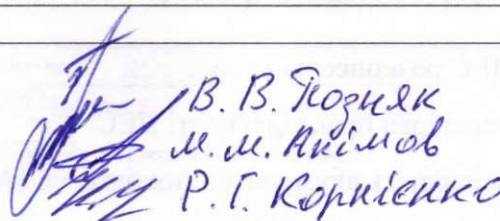 В. В. Позняк
М. М. Акімов
Р. Г. Корнієнко